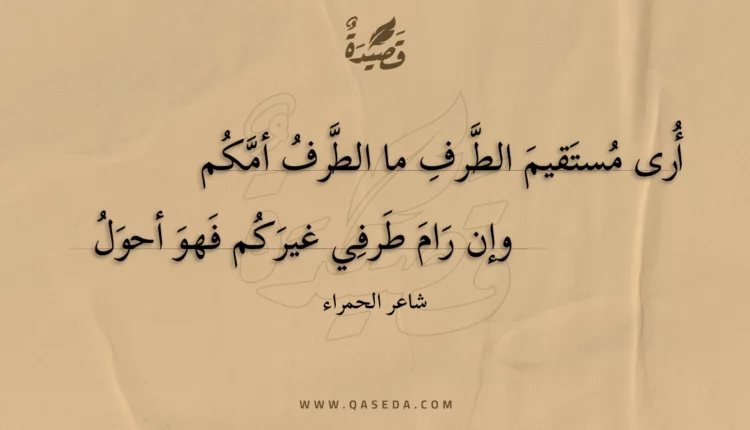 قَصِيدَةٌ
أُرى مُستَقيمَ الطَّرفِ ما الطَّرفُ أمَّكُم
وإن رَامَ طَرفِي غيرَكُم فَهوَ أحوَلُ
شاعر الحمراء
WWW.QASEDA.COM